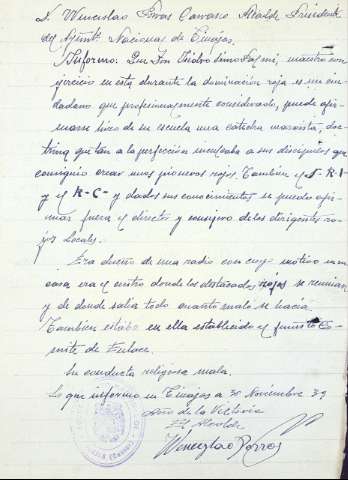 D. Wenceslao Porras Carrasco Alcalde Presidente
del Ayunt. Nacional de Tinajas.
Informo: Que Don Isidro Simo Fazmi, maestro con
ejercicio en esta durante la dominación roja es un ciu-
dadano que profesionalmente considerado, puede afir-
marse hizo de su escuela una cátedra marxista, doc-
trina que tan a la perfección inculcaba a sus discípulos que
consiguio crear unos pioneros rojos. Tambien el S-R-I
y el R-C- y dados sus conocimientos se puede afir-
mar fuera el director y consejero de los dirigentes ro-
jos locales.
Era dueño de una radio con cuyo motivo su
casa era el centro donde los destacados rojos se reunian
y de donde salia todo cuanto malo se hacia.
Tambien estaba en ella establecido el funesto Co-
mite de Enlace.
Su conducta religiosa mala.
Lo que informo en Tinajas a 30 Noviembre 39
Año de la Victoria
El Alcalde
Wenceslao Porras